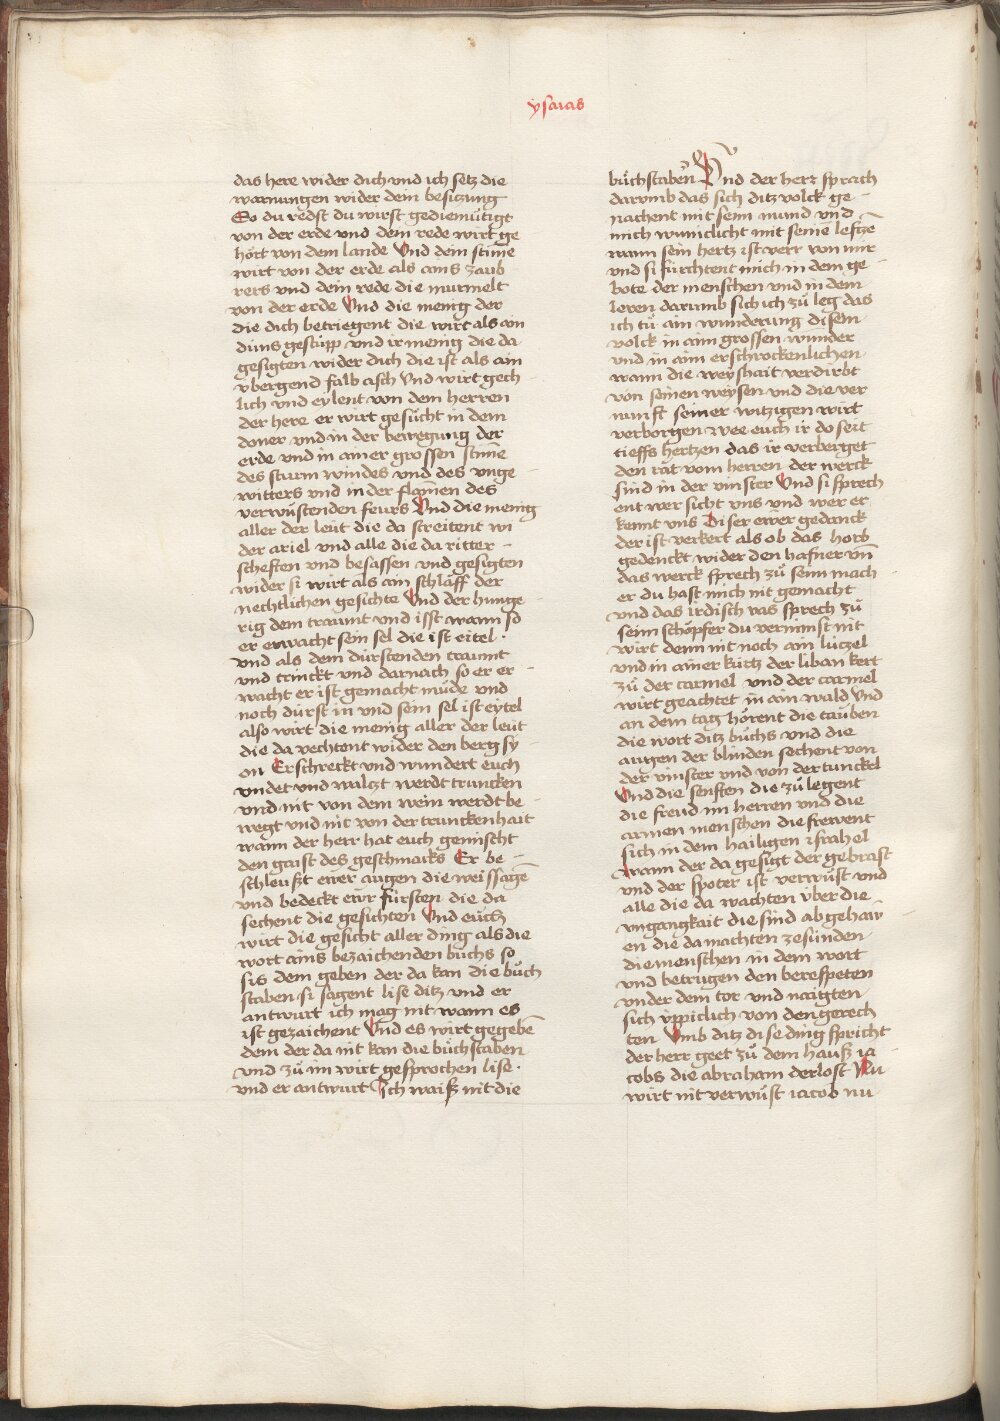 ysaias
das here wider dich vnd ich setz die
warnungen wider dem besitzung
So du redst du wirst gediemütigt
von der erde vnd dein rede wirt ge
hört von dem lande Vnd dein stim̄e
wirt von der erde als ains zaub
rers vnd dein rede die murmelt
von der erde Vnd die menig der
die dich betriegent die wirt als ain
düns gestüpp vnd ir menig die da
gesigten wider dich die ist als ain
vbergend falb asch Vnd wirt gech
lich vnd eylent von dem herren
der here er wirt gesücht in dem
doner vnd in der bewegung der
erde vnd in ainer grossen stim̄e
des sturm windes vnd des vnge
witters vnd in der flam̄en des
verwüstenden feurs Vnd die menig
aller der leüt die da streitent wi
der ariel vnd alle die da ritter
scheften vnd besassen vnd gesigten
wider si wirt als ain schlaff der
nechtlichen gesichte Vnd der hunge
rig dem traumt vnd isst wann so
er erwacht sein sel die ist eitel ·
vnd als dem dürstenden traumt
vnd trinckt vnd darnach so er er
wacht er ist gemacht müde vnd
noch dürst in vnd sein sel ist eytel
also wirt die menig aller der leüt
die da vechtent wider den berg sy
on Erschreckt vnd wundert euch
vndet vnd walczt werdt truncken
vnd nit von dem wein werdt be
wegt vnd nit von der trunckenhait
wann der herr hat euch gemischt
den gaist des geschmacks Er be
schleußt ewer augen die weissagē
vnd bedeckt ewr fürsten die da
sechent die gesichten Vnd eüch
wirt die gesicht aller ding als die
wort ains bezaichenden buchs so
sis dem geben der da kan die büch
staben si sagent lise ditz vnd er
antwurt ich mag nit wann es
ist gezaichent Vnd es wirt gegebē
dem der da nit kan die büchstaben
vnd zü im wirt gesprochen lise ·
vnd er antwurt Ich waiß nit die
büchstaben Vnd der herr sprach
darumb das sich ditz volck ge
nachent mit seim mund vnd
mich wirdiclicht mit seinē lefczē
wann sein hertz ist verr von mir
vnd si fürchtent mich in dem ge
bote der menschen vnd in dem
leren darumb sich ich zü leg das
ich tü ain wunderung disem
volck in aim grossen wunder
vnd in aim erschrockenlichen
wann die weyshait verdirbt
von seinen weysen vnd die ver
nunft seiner witzigen wirt
verborgen wee euch ir do seit
tieffs hertzen das ir verberget
den rät vom herren der werck
sind in der vinster Vnd si sprech
ent wer sicht vns vnd wer er
kennt vns Diser ewer gedanck
der ist verkert als ob das horb
gedenckt wider den hafner vn̄
das werck sprech zü seim mach
er du hast mich nit gemacht
vnd das irdisch vas sprech zü
seim schöpfer du vernimst nit
wirt denn nit noch ain lützel
vnd in ainer kürtz der liban kert
zü der carmel vnd der carmel
wirt geachtet in ain wald Vnd
an dem tag hörent die tauben
die wort ditz büchs vnd die
augen der blinden sechent von
der vinster vnd von der tunckel
Vnd die senften die zü legent
die freud im herren vnd die
armen menschen die frewent
sich in dem hailigen israhel
wann der da gesigt der gebrast
vnd der spoter ist verwüst vnd
alle die da wachten vber die
vngangkait die sind abgehaw
en die da machten ze sünden
die menschen in dem wort
vnd betrugen den berespeten
vnder dem tor vnd naigten
sich vppiclich von dem gerech
ten Vmb ditz dise ding spricht
der herr geet zü dem hauß ia
cobs die abraham derlost Nu
wirt nit verwüst iacob nu